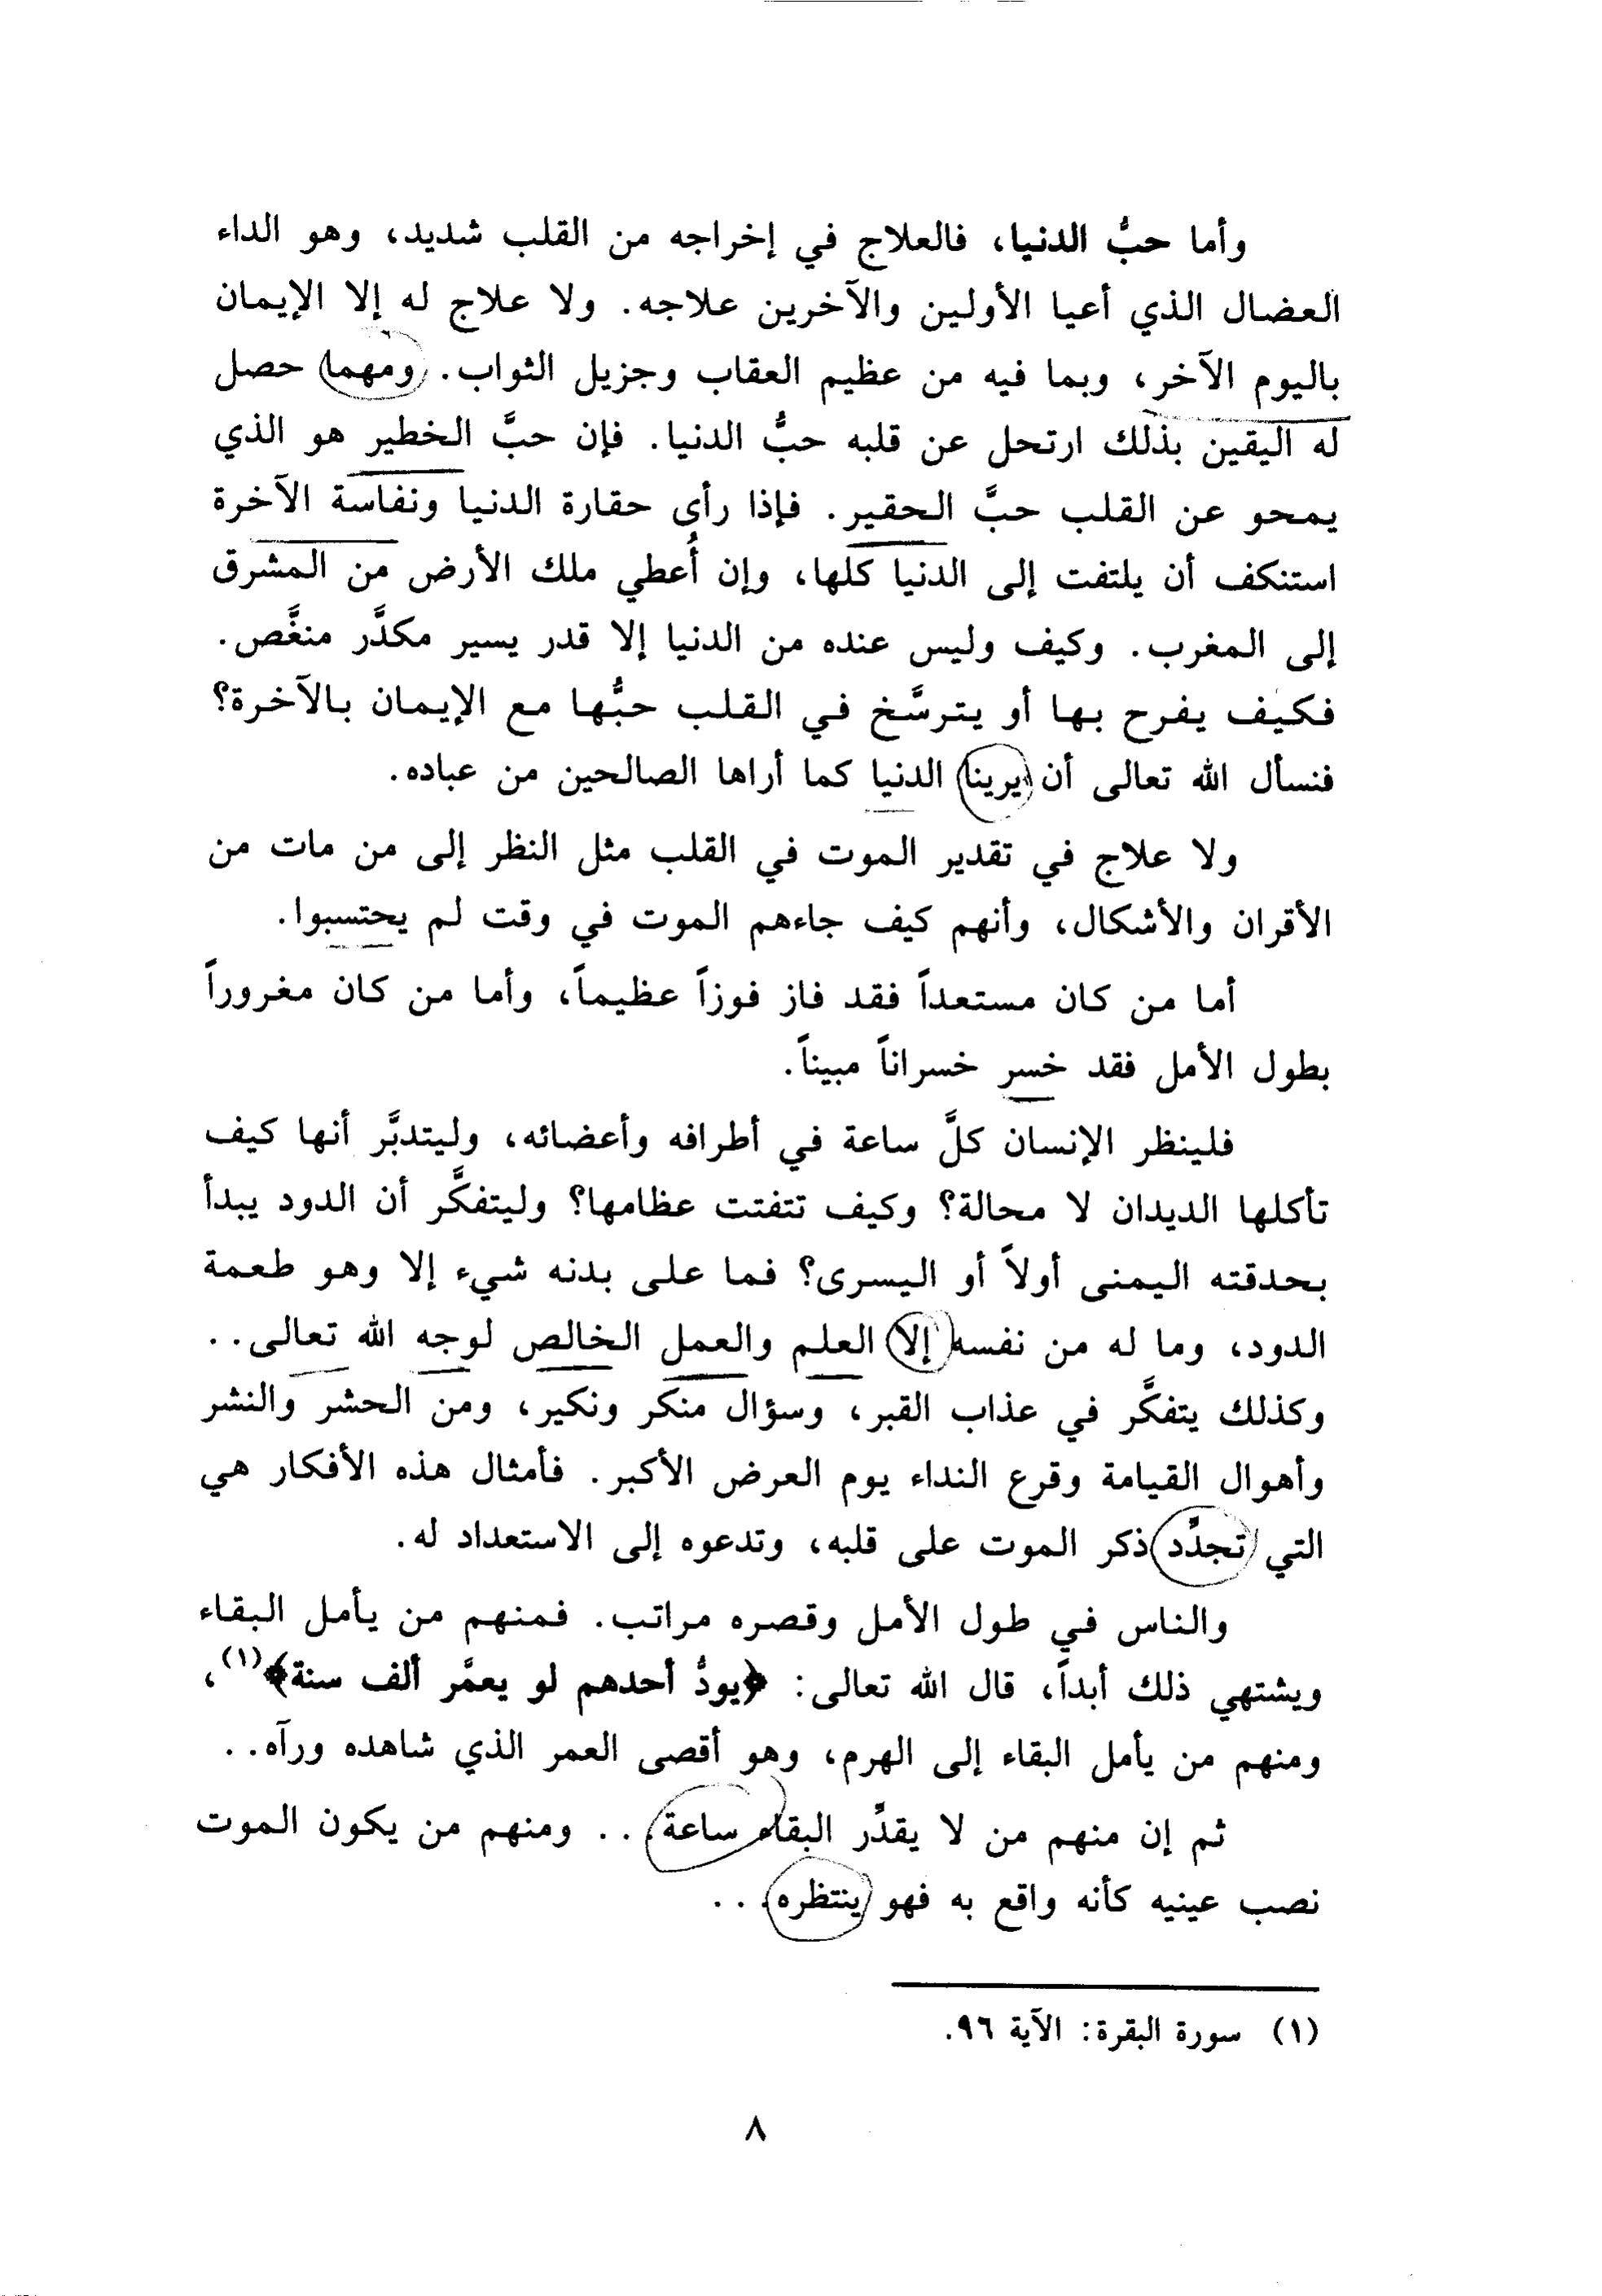 وأما حبُّ الدنيا، فالعلاج في إخراجه من القلب شديد، وهو الداء
العضال الذي أعيا الأولين والآخرين علاجه. ولا علاج له إلا الإيمان
باليوم الآخر، وبما فيه من عظيم العقاب وجزيل الثواب. ومهما حصل
له اليقين بذلك ارتحل عن قلبه حبُّ الدنيا. فإن حبَّ الخطير هو الذي
يمحو عن القلب حبَّ الحقير. فإذا رأى حقارة الدنيا ونفاسة الآخرة
استنكف أن يلتفت إلى الدنيا كلها، وإن أُعطي ملك الأرض من المشرق
إلى المغرب. وكيف وليس عنده من الدنيا إلا قدر يسير مكدَّر منغَّص.
فكيف يفرح بها أو يترسَّخ في القلب حبُّها مع الإيمان بالآخرة؟
فنسأل الله تعالى أن يرينا الدنيا كما أراها الصالحين من عباده.
ولا علاج في تقدير الموت في القلب مثل النظر إلى من مات من
الأقران والأشكال، وأنهم كيف جاءهم الموت في وقت لم يحتسبوا.
أما من كان مستعداً فقد فاز فوزاً عظيماً، وأما من كان مغروراً
بطول الأمل فقد خسر خسراناً مبيناً.
فلينظر الإنسان كلَّ ساعة في أطرافه وأعضائه، وليتدبَّر أنها كيف
تأكلها الديدان لا محالة؟ وكيف تتفتت عظامها؟ وليتفكَّر أن الدود يبدأ
بحدقته اليمنى أولاً أو اليسرى؟ فما على بدنه شيء إلا وهو طعمة
الدود، وما له من نفسه إلا العلم والعمل الخالص لوجه الله تعالى..
وكذلك يتفكَّر في عذاب القبر، وسؤال منكر ونكير، ومن الحشر والنشر
وأهوال القيامة وقرع النداء يوم العرض الأكبر. فأمثال هذه الأفكار هي
التي تجدِّد ذكر الموت على قلبه، وتدعوه إلى الاستعداد له.
والناس في طول الأمل وقصره مراتب. فمنهم من يأمل البقاء
ويشتهي ذلك أبداً، قال الله تعالى: ﴿يودُّ أحدهم لو يعمَّر ألف سنة﴾(١)،
ومنهم من يأمل البقاء إلى الهرم، وهو أقصى العمر الذي شاهده ورآه..
ثم إن منهم من لا يقدِّر البقاء ساعة.. ومنهم من يكون الموت
نصب عينيه كأنه واقع به فهو ينتظره...
(١) سورة البقرة: الآية ٩٦.
٨